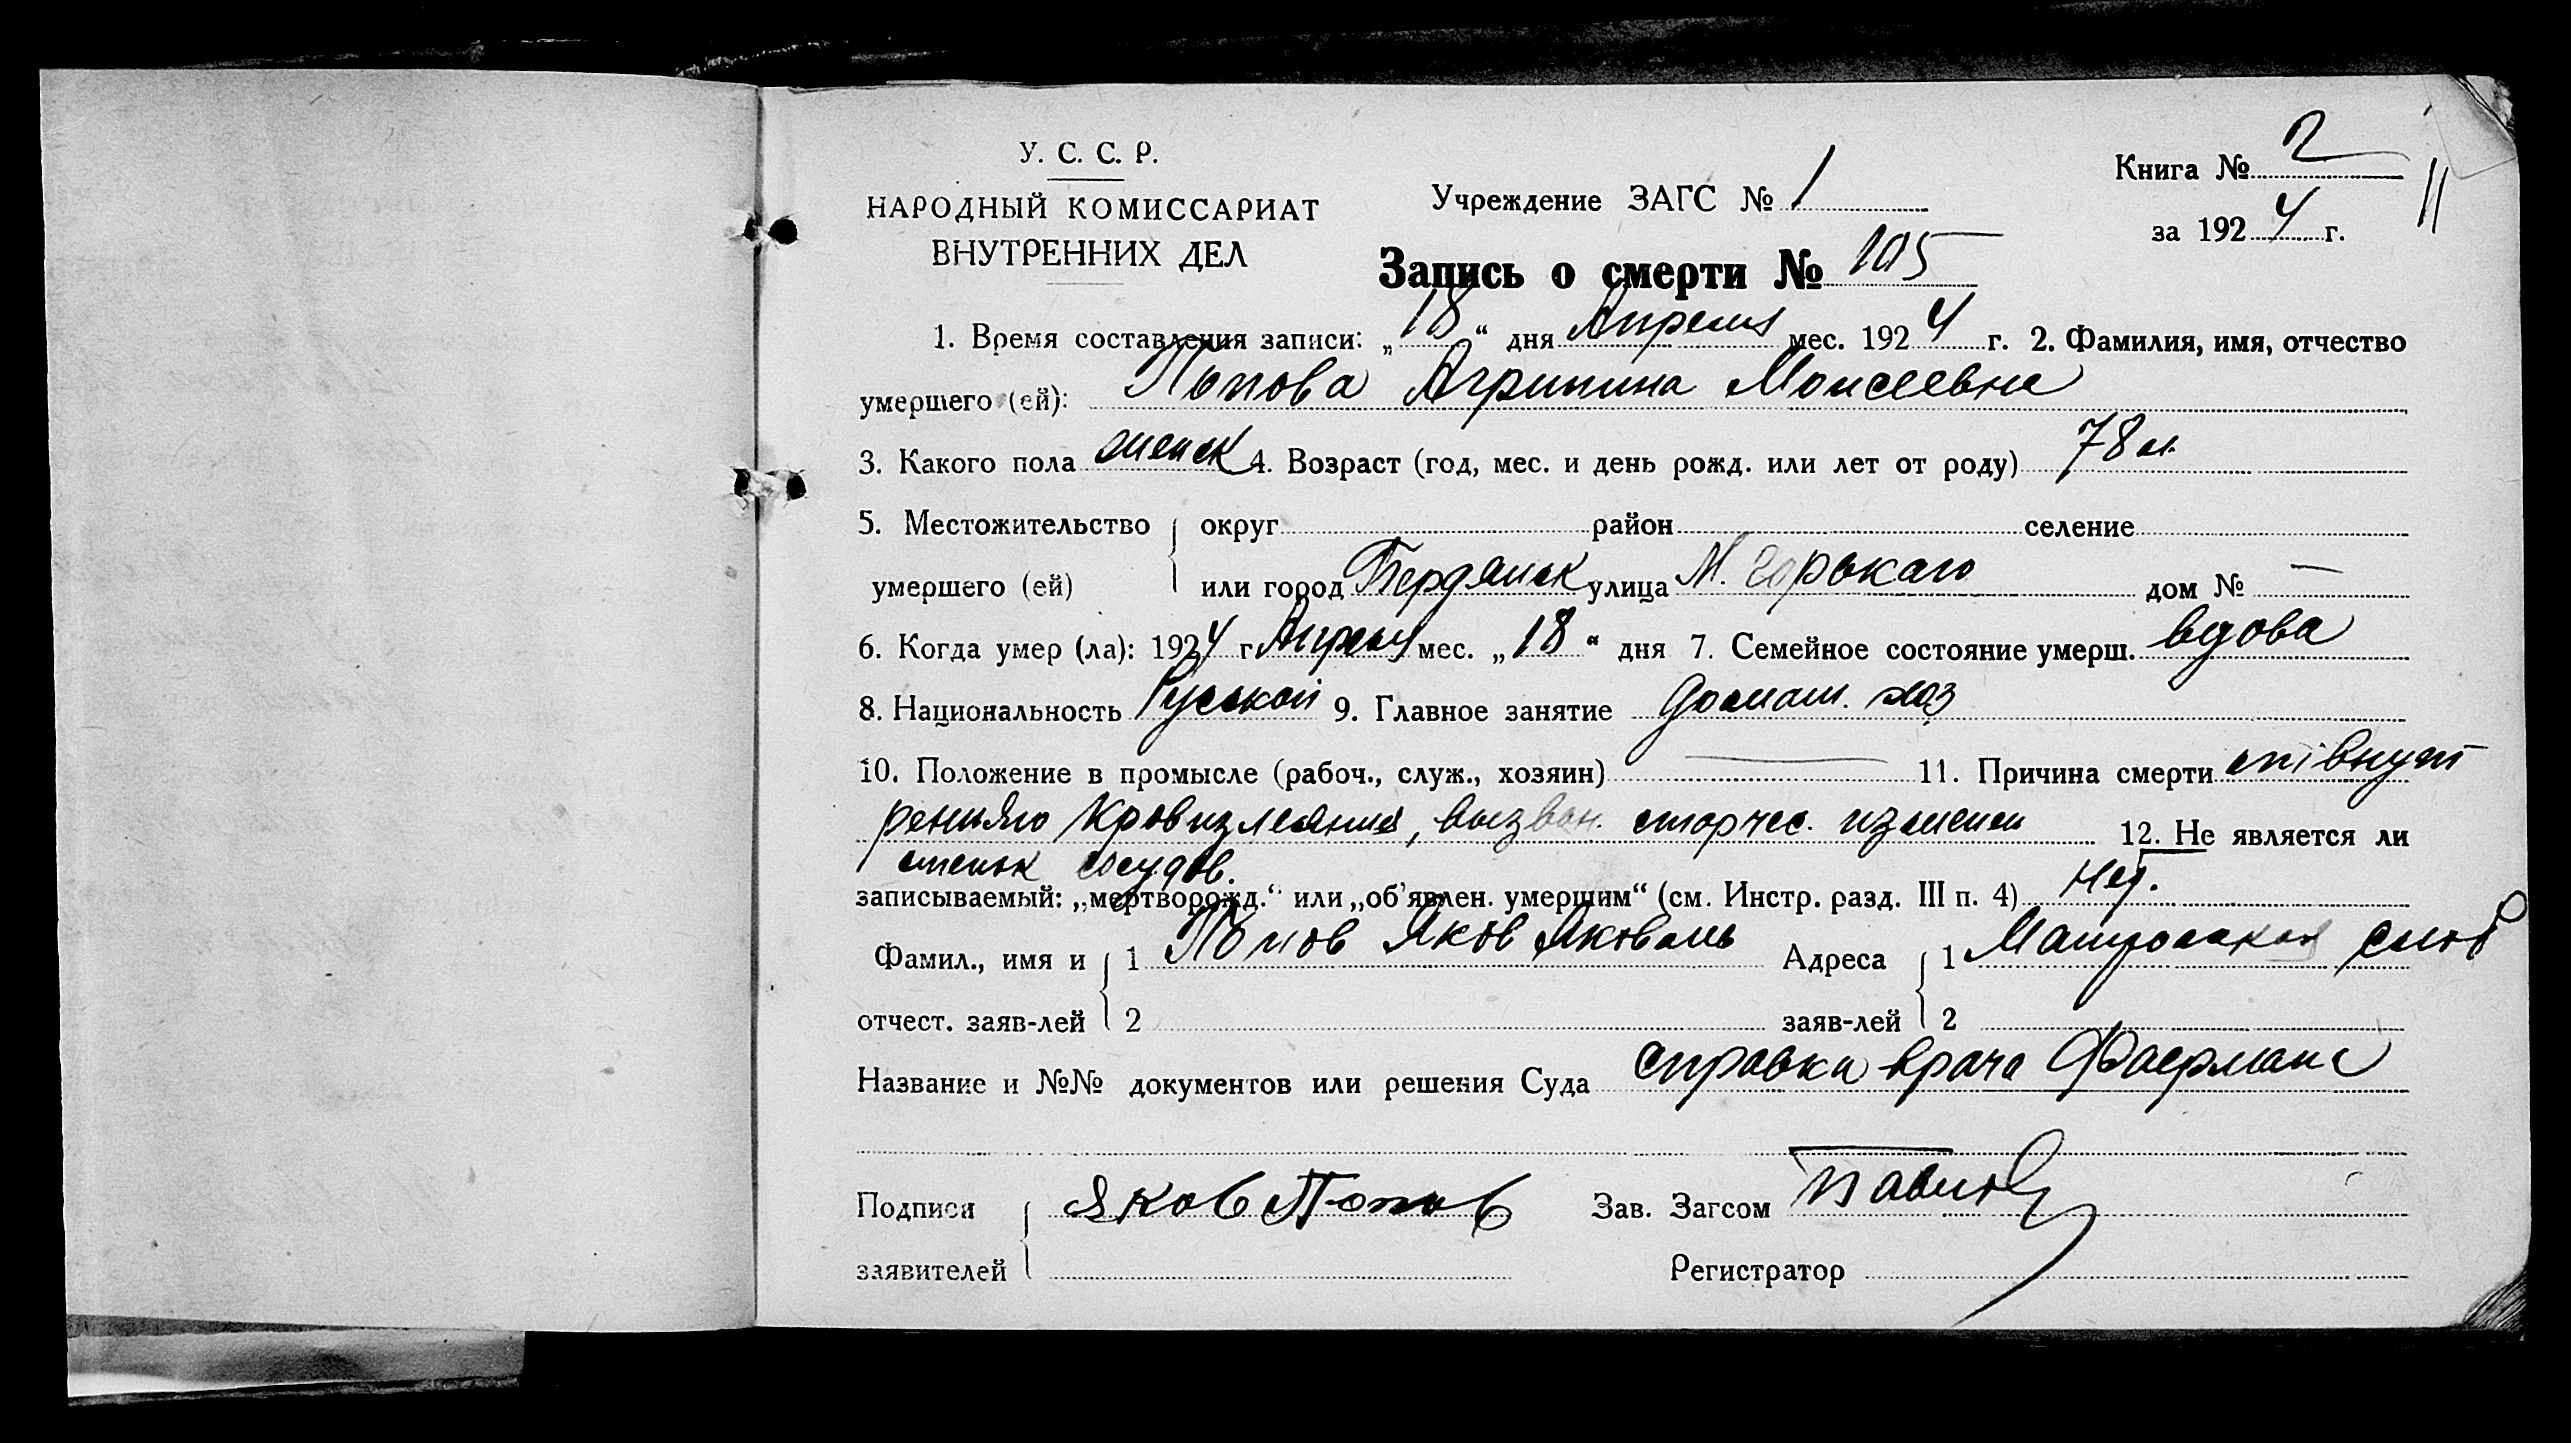 У. С. С. Р.
НАРОДНЫЙ КОМИССАРИАТ
ВНУТРЕННИХ ДЕЛ
Учреждение ЗАГС № 1
Книга № 2
за 1924 г.
11
Запись о смерти № 105
1. Время составления записи: „18“ дня Апреля мес. 1924 г. 2. Фамилия, имя, отчество
умершего (ей): Попова Агрипина Моисеевна
3. Какого пола женск 4. Возраст (год, мес. и день рожд. или лет от роду) 78 л.
5. Местожительство округ район селение
умершего (ей) или город Бердянск улица М. Горькаго дом № —
6. Когда умер (ла): 1924 г. Апреля мес. „18“ дня 7. Семейное состояние умерш. вдова
8. Национальность Русской 9. Главное занятие домаш. хоз
10. Положение в промысле (рабоч., служ., хозяин) — 11. Причина смерти от внут
ренняго кровизлеяния, вызван. старчес. изменен 12. Не является ли
стенок сосудов.
записываемый: „мертворожд.“ или „об’явлен. умершим“ (см. Инстр. разд. III п. 4) Нет.
Фамил., имя и 1 Попов Яков Яковель Адреса 1 Матросская слоб
отчест. заяв-лей 2 заяв-лей 2
Название и №№ документов или решения Суда справка врача Фаермана
Подписи Яков Попов Зав. Загсом
заявителей Регистратор